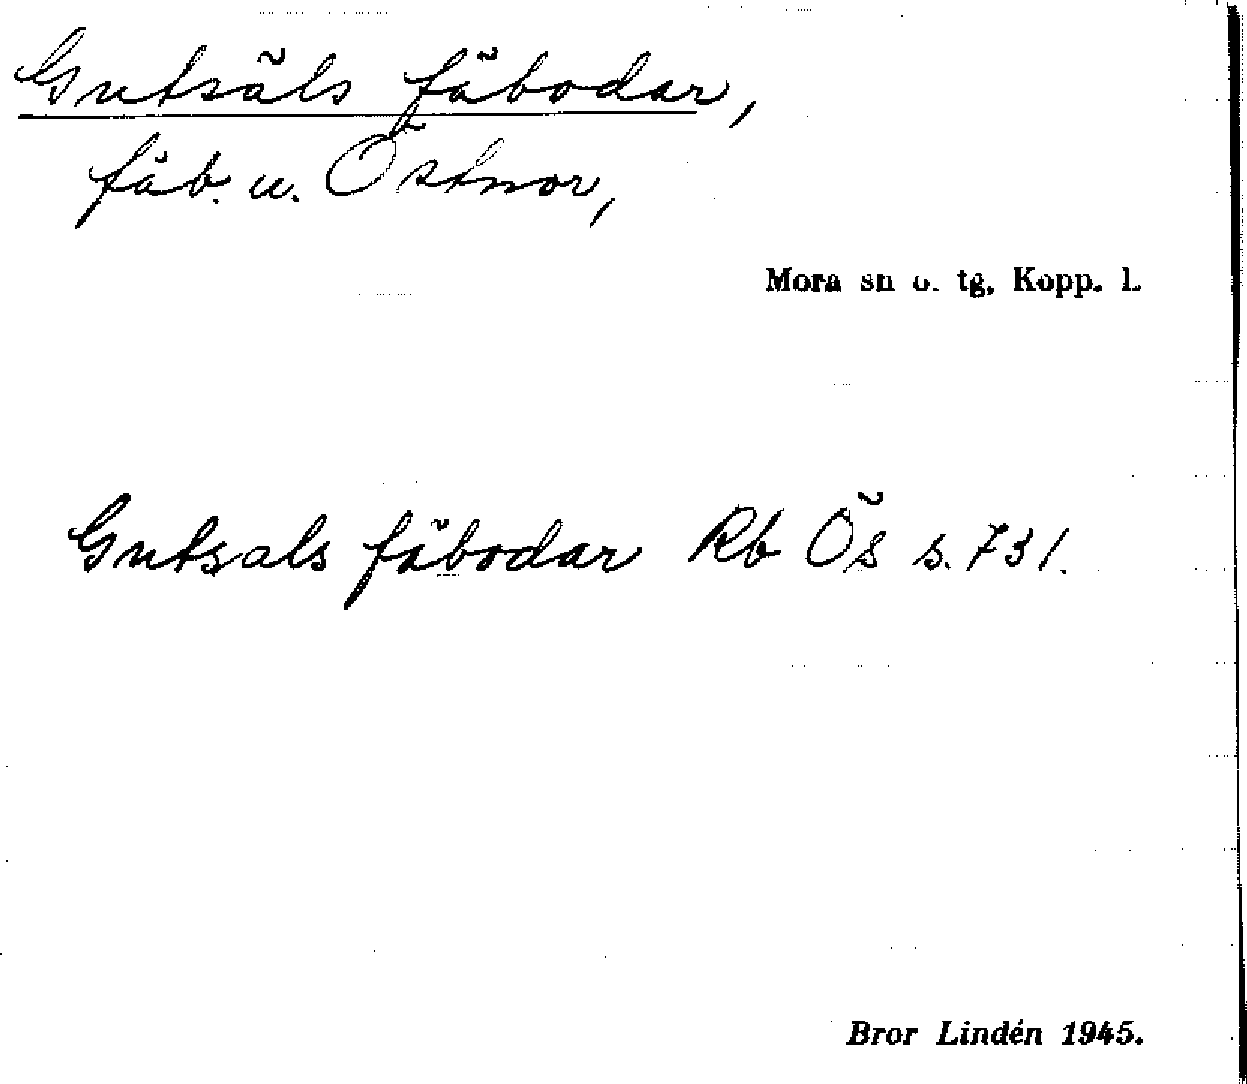 Gutsäls fäbodar,
fäb. u. Östnor,
Mora sn o. tg, Kopp. l.
Gutsals fäbodar Rb Ös s. 731.
Bror Lindén 1945.